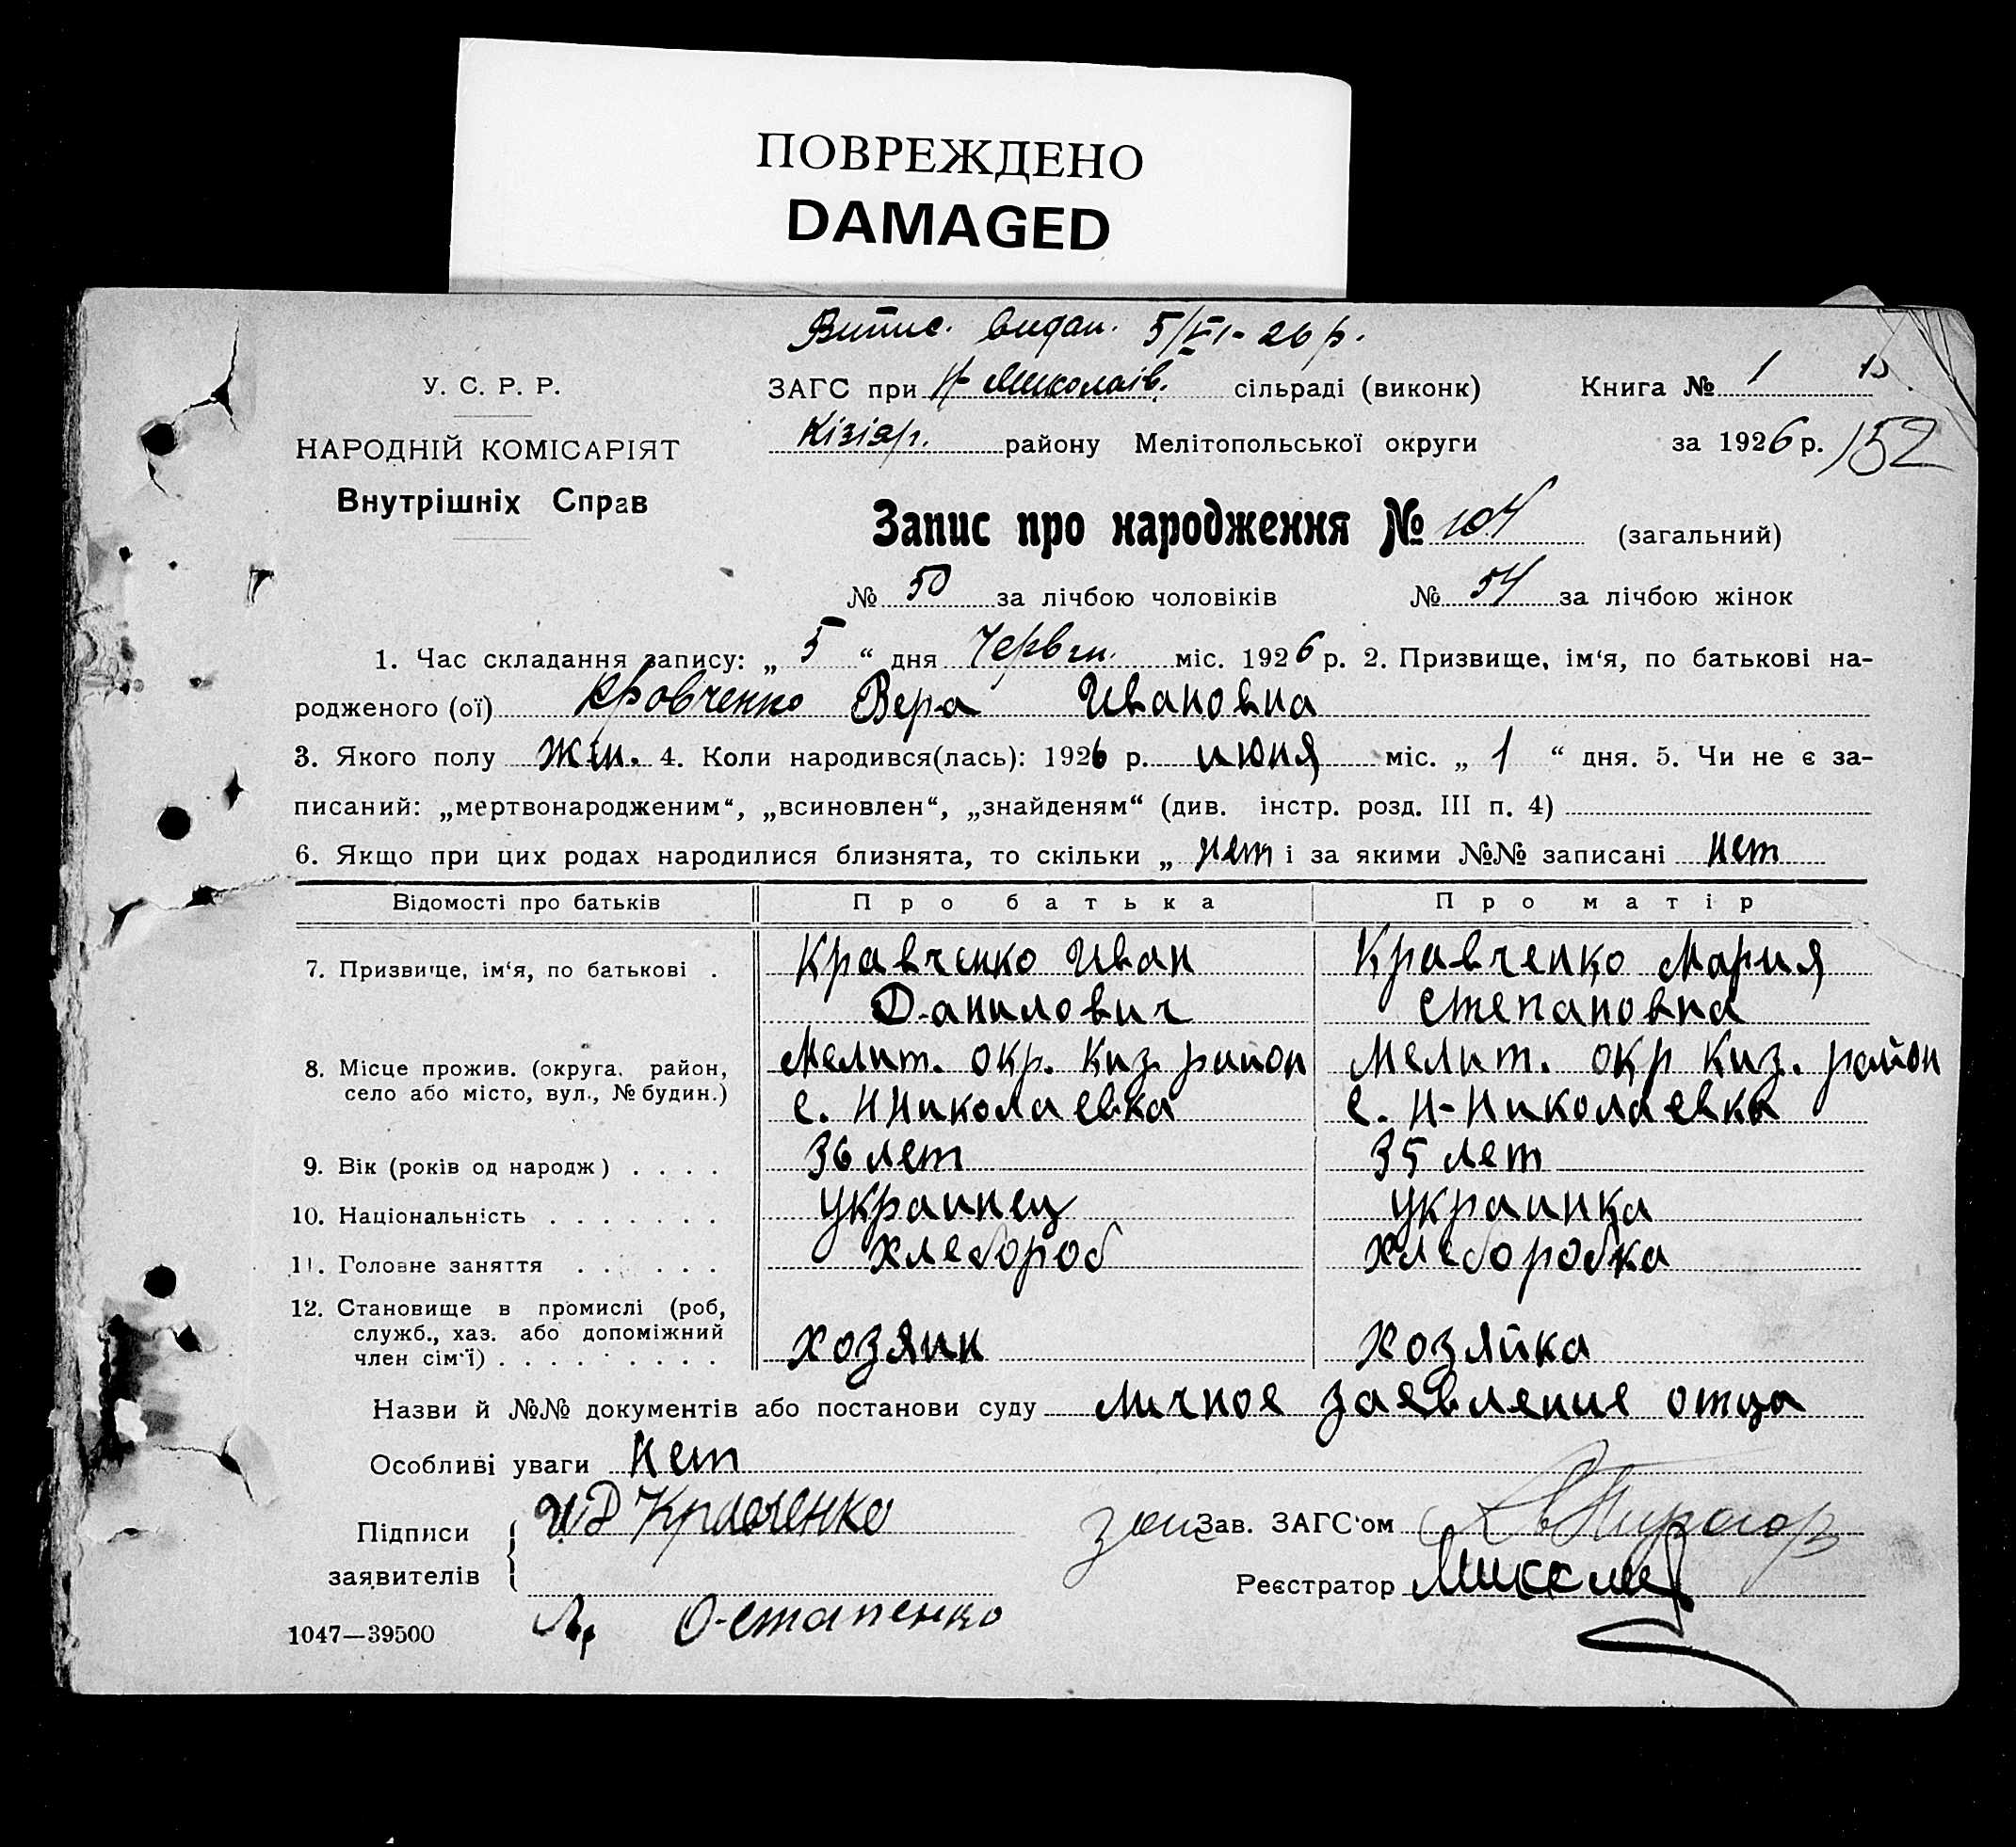 ПОВРЕЖДЕНО
DAMAGED
Витис. видан. 5/VI-26 р.
У. С. Р. Р.
ЗАГС при Н Миколаїв. сільраді (виконк) Книга № 1
Кізіяр. району Мелітопольської округи за 1926 р. 152
НАРОДНІЙ КОМІСАРІЯТ
Внутрішніх Справ
Запис про народження № 104 (загальний)
№ 50 за лічбою чоловіків № 54 за лічбою жінок
1. Час складання запису: „ 5 “ дня Червн. міс. 1926 р. 2. Призвище, ім‘я, по батькові на-
родженого (ої) Кровченко Вера Ивановна
3. Якого полу жін. 4. Коли народився(лась): 1926 р. июня міс. „ 1 “ дня. 5. Чи не є за-
писаний: „мертвонародженим“, „всиновлен“, „знайденям“ (див. інстр. розд. III п. 4)
6. Якщо при цих родах народилися близнята, то скільки „ нет і за якими №№ записані нет
Відомості про батьків Про батька Про матір
7. Призвище, ім‘я, по батькові . Кравченко Иван Кравченко Мария
Данилович Степановна
8. Місце прожив. (округа. район, Мелит. окр. Киз. район Мелит. окр Киз. район
село або місто, вул., № будин.) с. ННиколаевка с. Н-Николаевка
9. Вік (років од народж) . . . . 36 лет 35 лет
10. Національність . . . . . . . украинец украинка
11. Головне заняття . . . . . . хлебороб хлеборобка
12. Становище в промислі (роб,
служб., хаз. або допоміжний
член сім‘ї) . . . . . . . . . . хозяин хозяйка
Назви й №№ документів або постанови суду личное заявление отца
Особливі уваги нет
Підписи заявителів ИД Кравченко
Зав. ЗАГС‘ом
Реєстратор
Остапенко
1047—39500